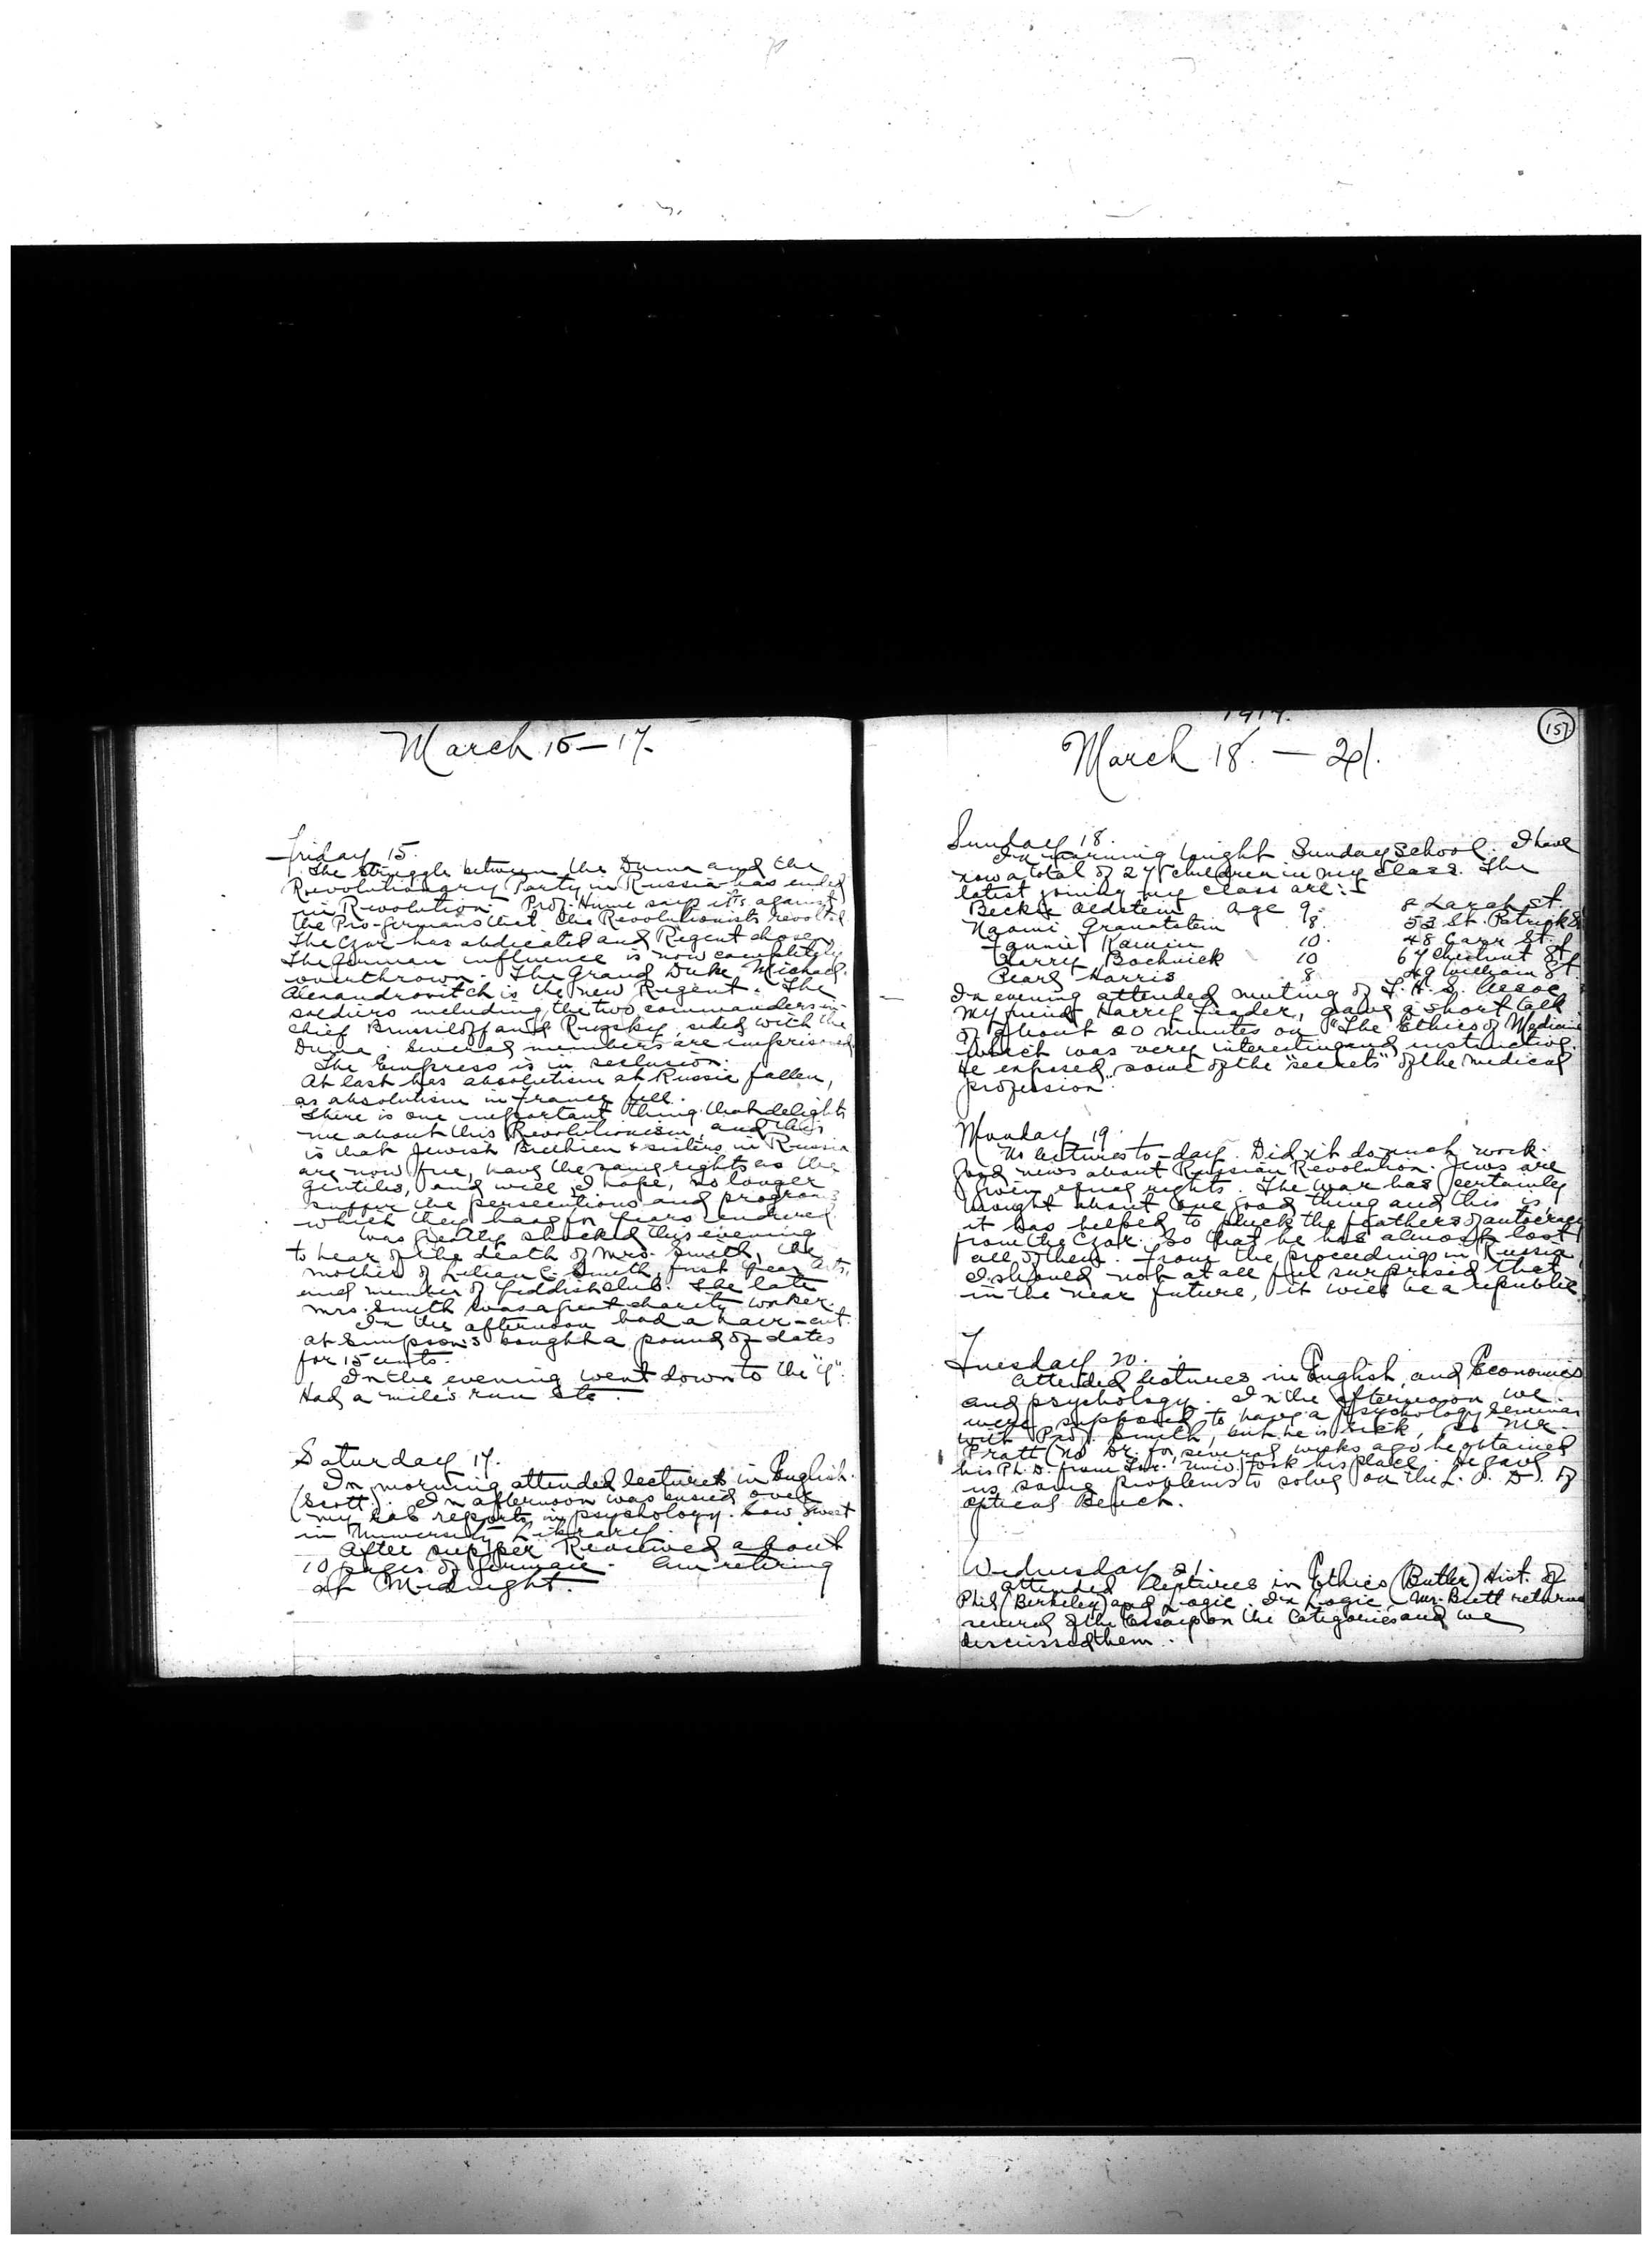 March 15 - 17.
Friday 15.
The struggle between the Duma and the
Revolutionary Party in Russia has ended
in Revolution. Prof. Hume says it is against
the Pro-Germans that the Revolutionists revolted
The Czar has abdicated and Regent chosen
The German influence is now completely
overthrown. The Grand Duke Michael
Alexandrovitch is the new Regent. The
soldiers including the two commanders in
chief Brussiloff and Russky, sided with the
Duma. Several members are imprisoned
The Empress is in seclusion.
At last has absolutism at Russia fallen,
as absolutism in France fell.
There is one important thing that delights
me about this Revolutionism, and this
is that Jewish Brethren & sisters in Russia
are now free, have the same rights as the
gentiles, and will I hope, no longer
suffer the persecutions and pogroms
which they have for years endured.
Was greatly shocked this evening
to hear of the death of Mrs. Smith, the
mother of Lilian C. Smith, first year Arts,
and member of Yiddish club. The late
Mrs. Smith was a great charity worker.
In the afternoon had a hair-cut.
At Simpson's bought a pound of dates
for 15 cents.
In the evening went down to the "Y".
Had a mile's run etc.
Saturday 17.
In morning attended lectures in English.
(Scott). In afternoon was busied over
my Lab reports in psychology. Saw Sweet
in University Library.
After supper Reviewed about
10 pages of German. Am retiring
at Midnight.
1917.
157
March 18. - 21.
Sunday 18.
In morning taught Sunday School. I have
now a total of 27 children in my class. The
latest joining my class are:-
Becky Oldstein age 9. 2 Larah St.
Naomi Granatstein 8. 52 St. Patrick St
Fannie Kamin 10. 48 Carr St.
Harry Bochnick 10 67 Chestnut St
Pearl Harris 8 49 William St.
In evening attended meeting of T. H. S. Assoc.
My friend Harry Feader, gave a short talk
of about 20 minutes on "The Ethics of Medicine
which was very interesting and instructive.
He exposed some of the "secrets" of the medical
profession.
Monday 19.
No lectures to-day. Didn't do much work.
Good news about Russian Revolution. Jews are
given equal rights. The war has certainly
brought about one good thing and this is,
it has helped to pluck the feathers of autocracy
from the Czar. So that he has almost lost
all of them. From the proceedings in Russia
I should not at all feel surprised that
in the near future, it will be a republic.
Tuesday 20.
Attended lectures in English, and Economics
and psychology. In the afternoon we
were supposed to have a psychology seminar
with Prof. Smith, but he is sick, so Mr.
Pratt (no Dr. for several weeks ago he obtained
his Ph.D. from Univ) took his place. He gave
us some problems to solve on the L. P. D. of
optical Bench.
Wednesday 21
Attended lectures in Ethics (Butler) Hist. of
Phil (Berkeley) and Logic. In Logic Mr. Brett returned
several of the Essays on the Categories and we
discussed them.